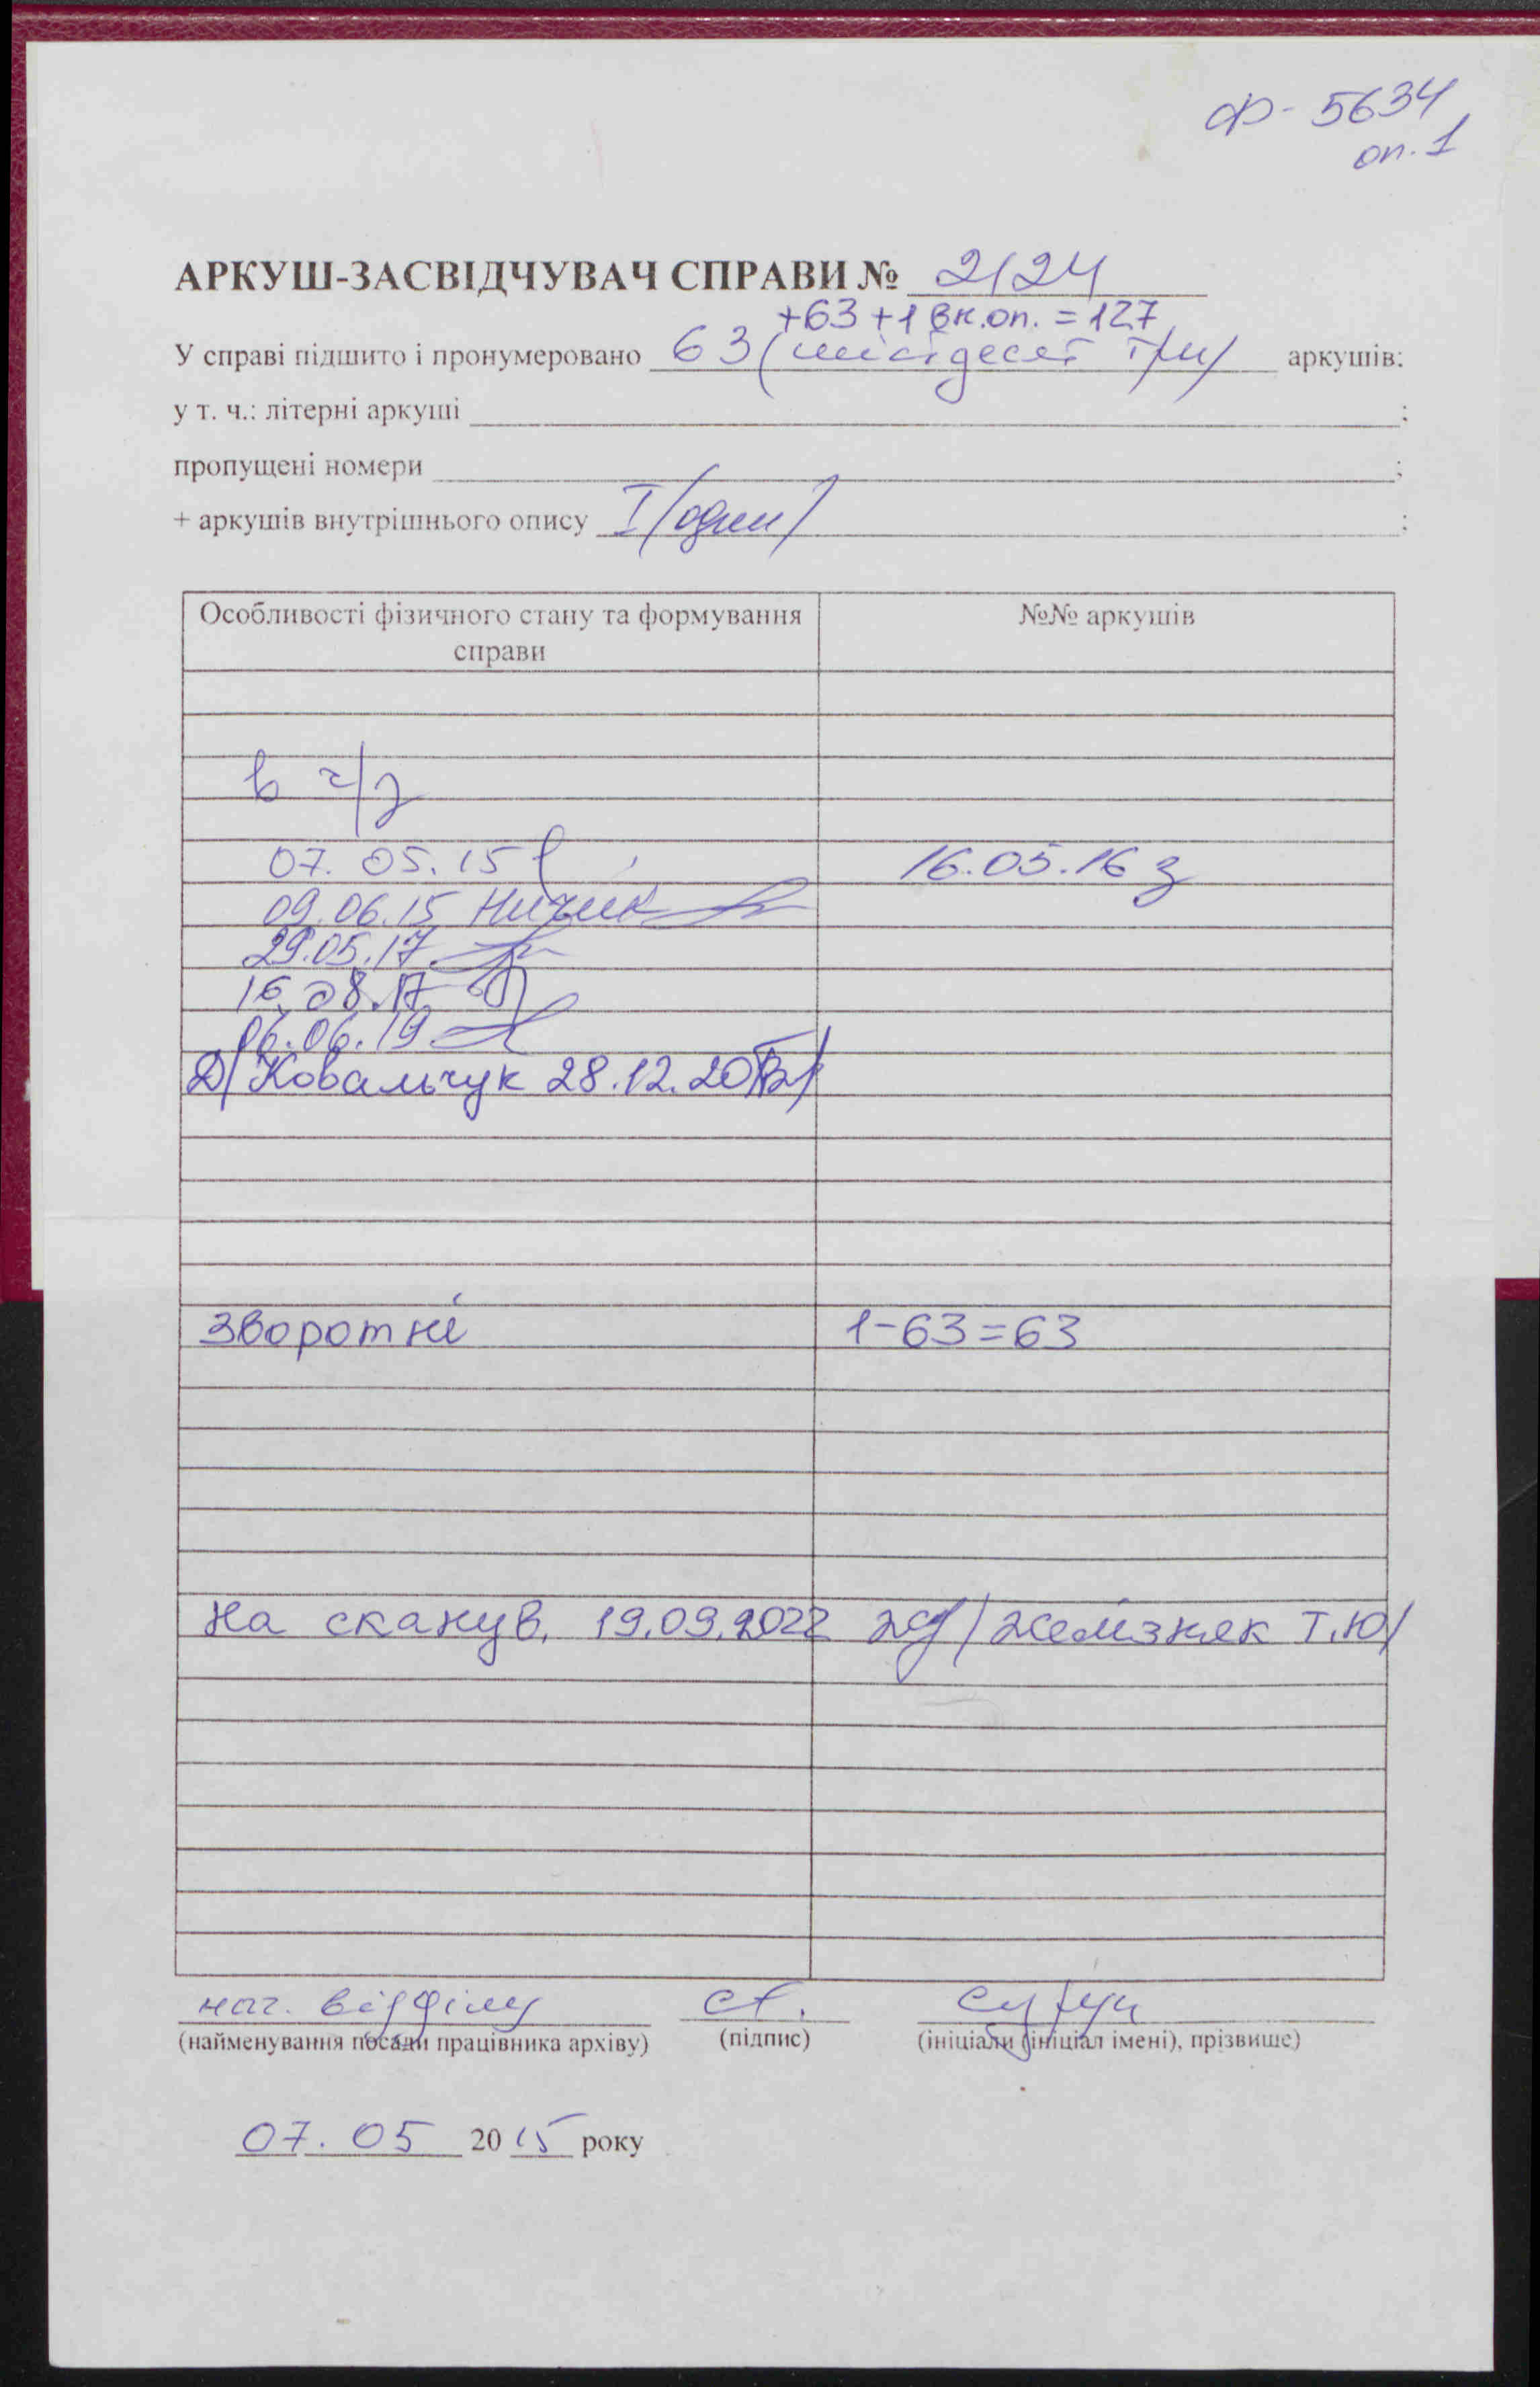 Ф- 5634
оп. 1
АРКУШ-ЗАСВІДЧУВАЧ СПРАВИ № 2124
+63 +1 вн.оп. = 127
У справі підшито і пронумеровано 63 (шістдесят три) аркушів:
у т. ч.: літерні аркуші ;
пропущені номери ;
+ аркушів внутрішнього опису 1 (один) ;
Особливості фізичного стану та формування справи №№ аркушів
в ч/з
07. 05. 15 16.05.16
09.06.15 Ничик
29.05.17
16.08.17
06.06.19
Ковальчук 28.12.20
зворотні 1-63=63
на сканув. 19.09.2022 /Желізняк Т.Ю/
нач. відділу
(найменування посади працівника архіву) (підпис) (ініціали (ініціал імені), прізвище)
07. 05 2015 року